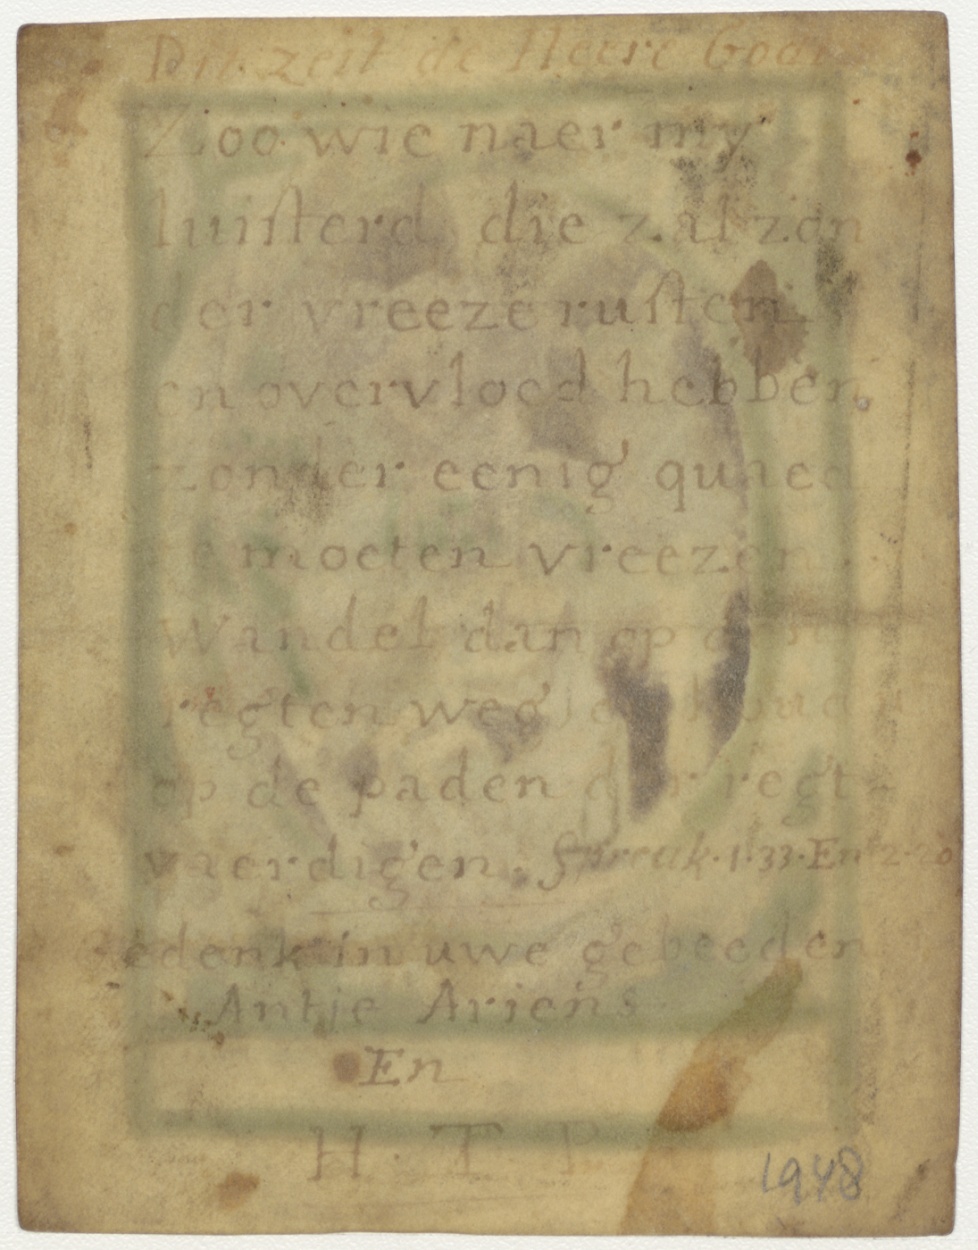 Dit zeit de Heere Godt
Zoo wie naer my
luisterd die zal zon
der vreeze rusten
en overvloed hebben
zonder eenig quaed
te moeten vreezen.
Wandel dan op
regten weg
op de paden der regt-
vaerdigen. Spreuk. 1.33. En 2.20
Gedenk in uwe gebeeden
Antje Ariens
En
H. T. P.
1948